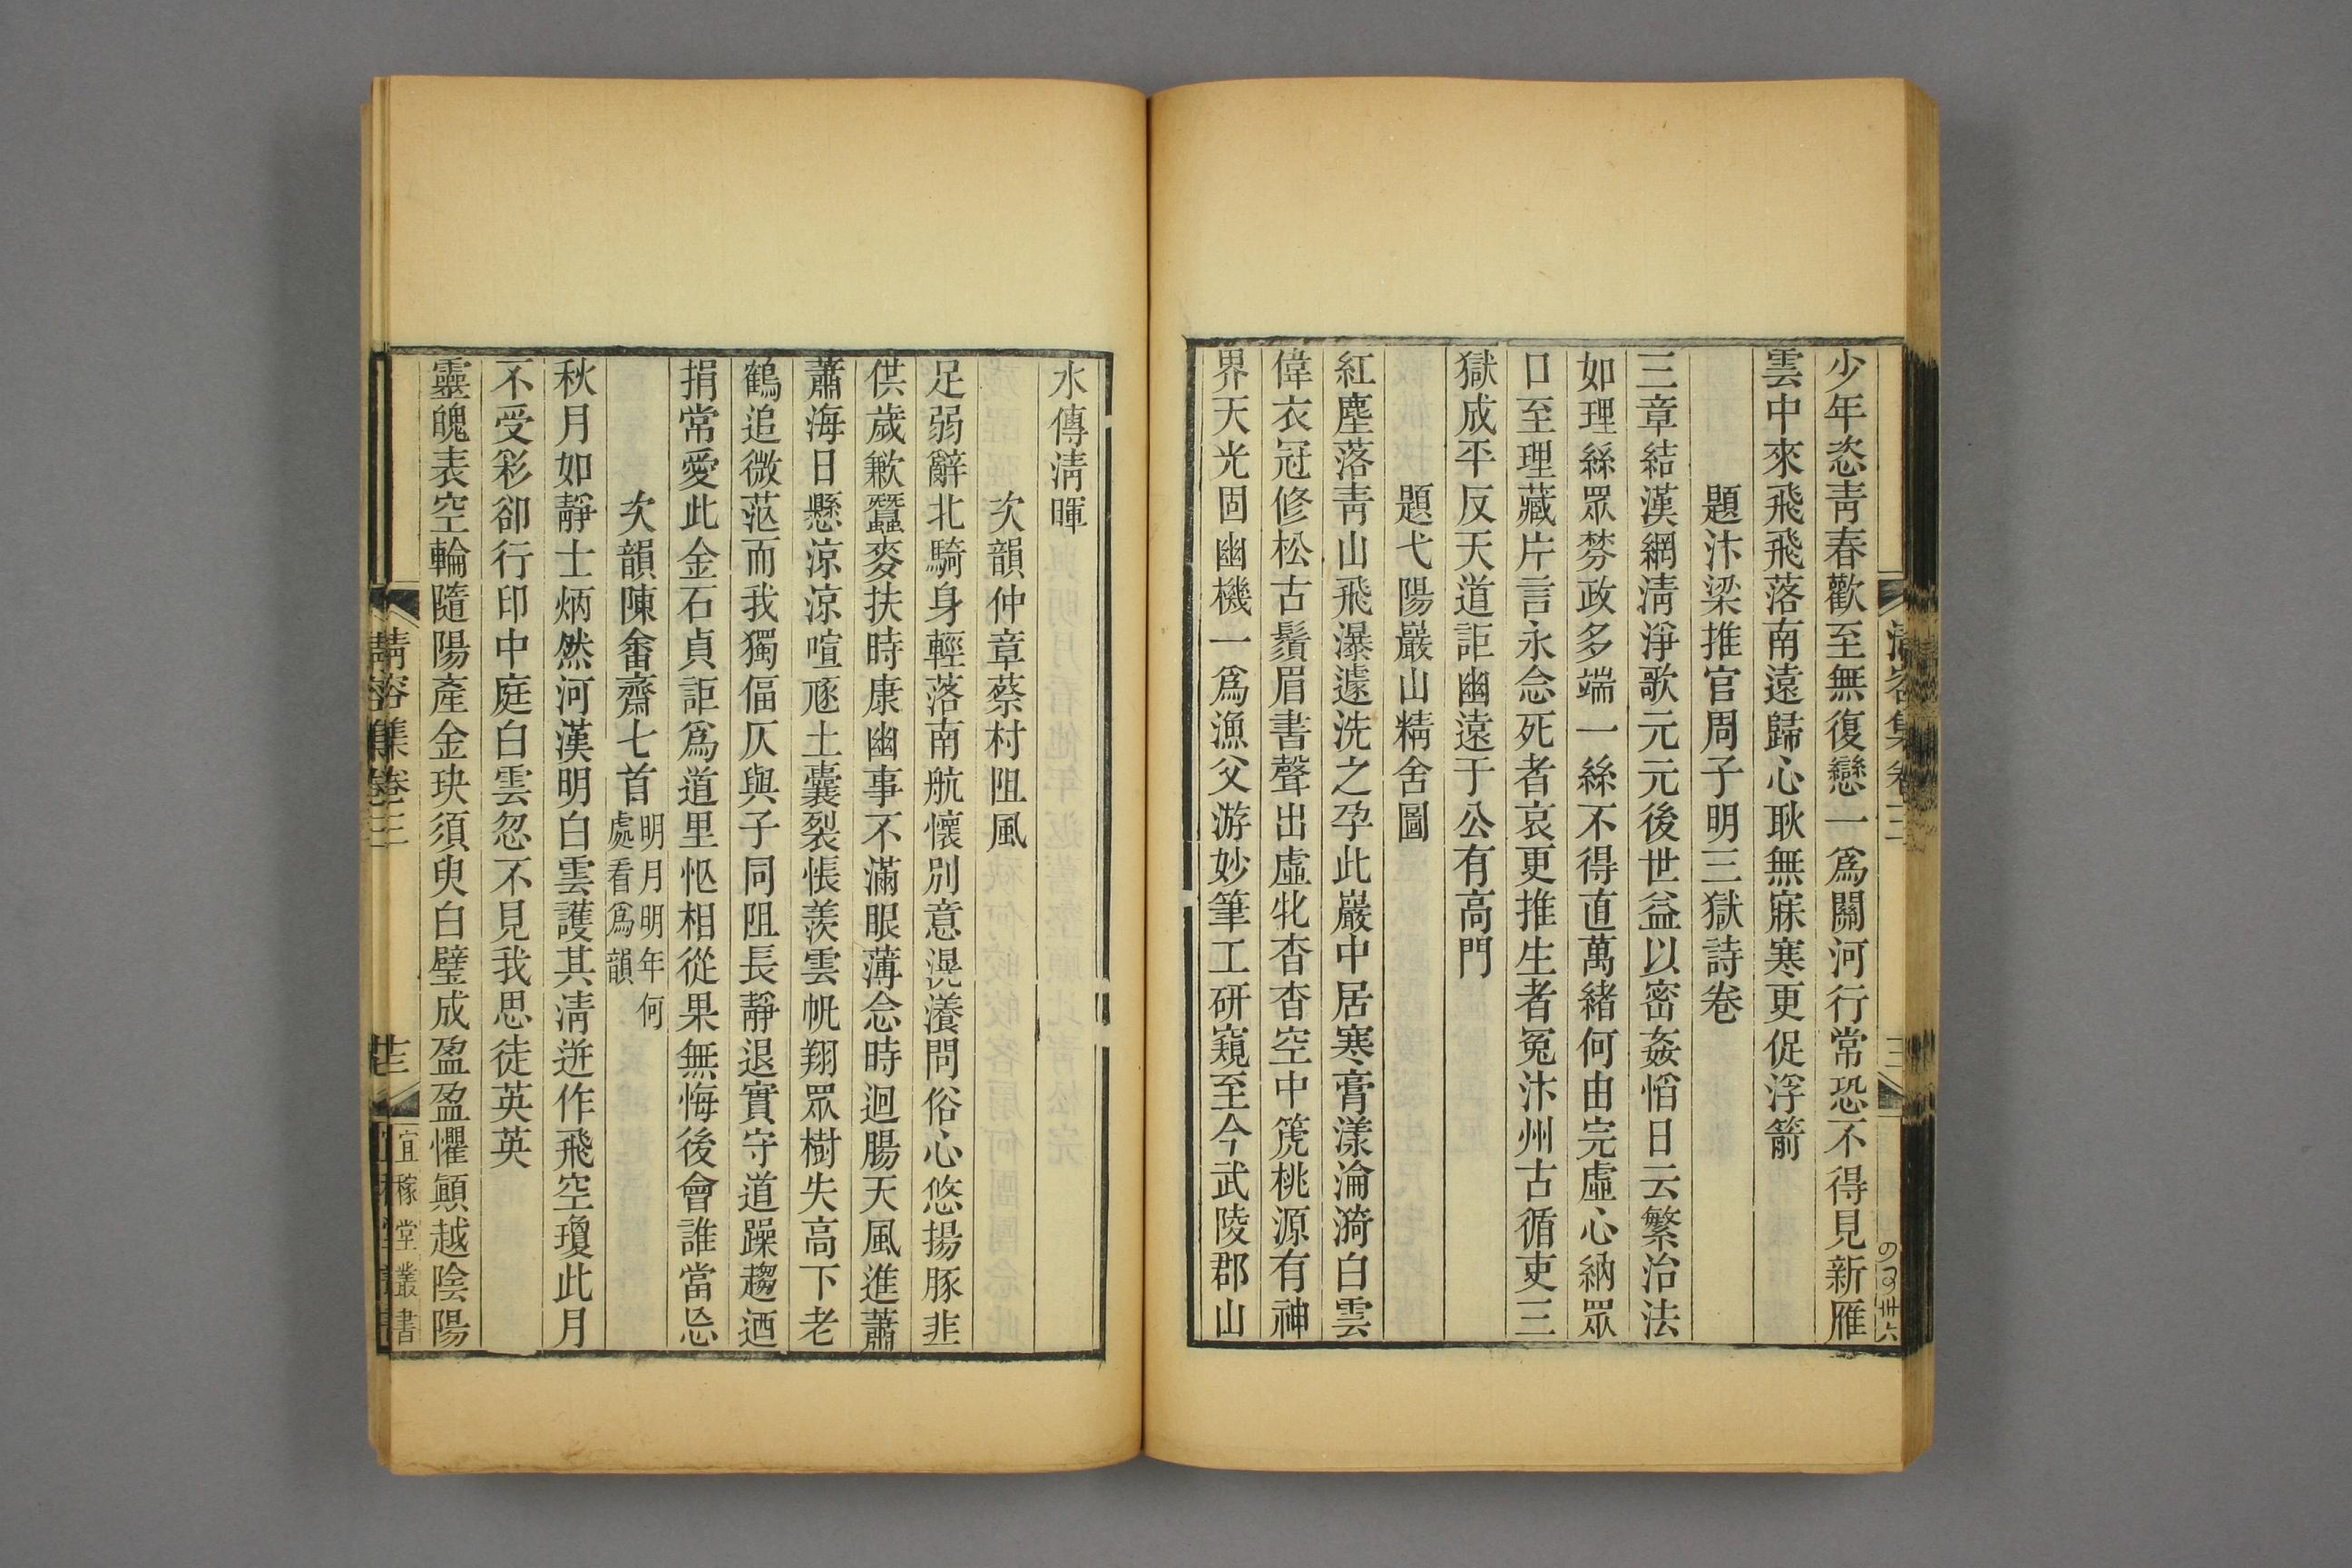 少年恣靑春歡至無復戀一爲關河行常恐不得見新雁
雲中來飛飛落南遠歸心耿無寐寒更促浮箭
題汴梁推官周子明三獄詩卷
三章結漢網淸淨歌元元後世益以密姦慆日云繁治法
如理絲眾棼政多端一絲不得直萬緒何由完虛心納眾
口至理藏片言永念死者哀更推生者冤汴州古循吏三
獄成平反天道詎幽遠于公有高門
題弋陽巖山精舍圖
紅塵落靑山飛瀑遽洗之孕此巖中居寒膏漾淪漪白雲
偉衣冠修松古鬚眉書聲出虛牝杳杳空中箎桃源有神
界天光固幽機一爲漁父游妙筆工研窺至今武陵郡山
水傳淸暉
次韻仲章蔡村阻風
足弱辭北騎身輕落南航懷別意滉瀁問俗心悠揚豚韭
供歲歉蠶麥扶時康幽事不滿眼薄念時迴腸天風進蕭
蕭海日懸涼涼喧豗土囊裂悵羨雲帆翔眾樹失高下老
鶴追微茫而我獨偪仄與子同阻長靜退實守道躁趨迺
捐常愛此金石貞詎爲道里忪相從果無悔後會誰當忘
次韻陳畬齋七首
明月明年何
處看爲韻
秋月如靜士炳然河漢明白雲護其淸迸作飛空瓊此月
不受彩卻行印中庭白雲忽不見我思徒英英
靈魄表空輪隨陽產金玦須臾白璧成盈盈懼顚越陰陽
淸容集卷三
三
宜稼堂叢書